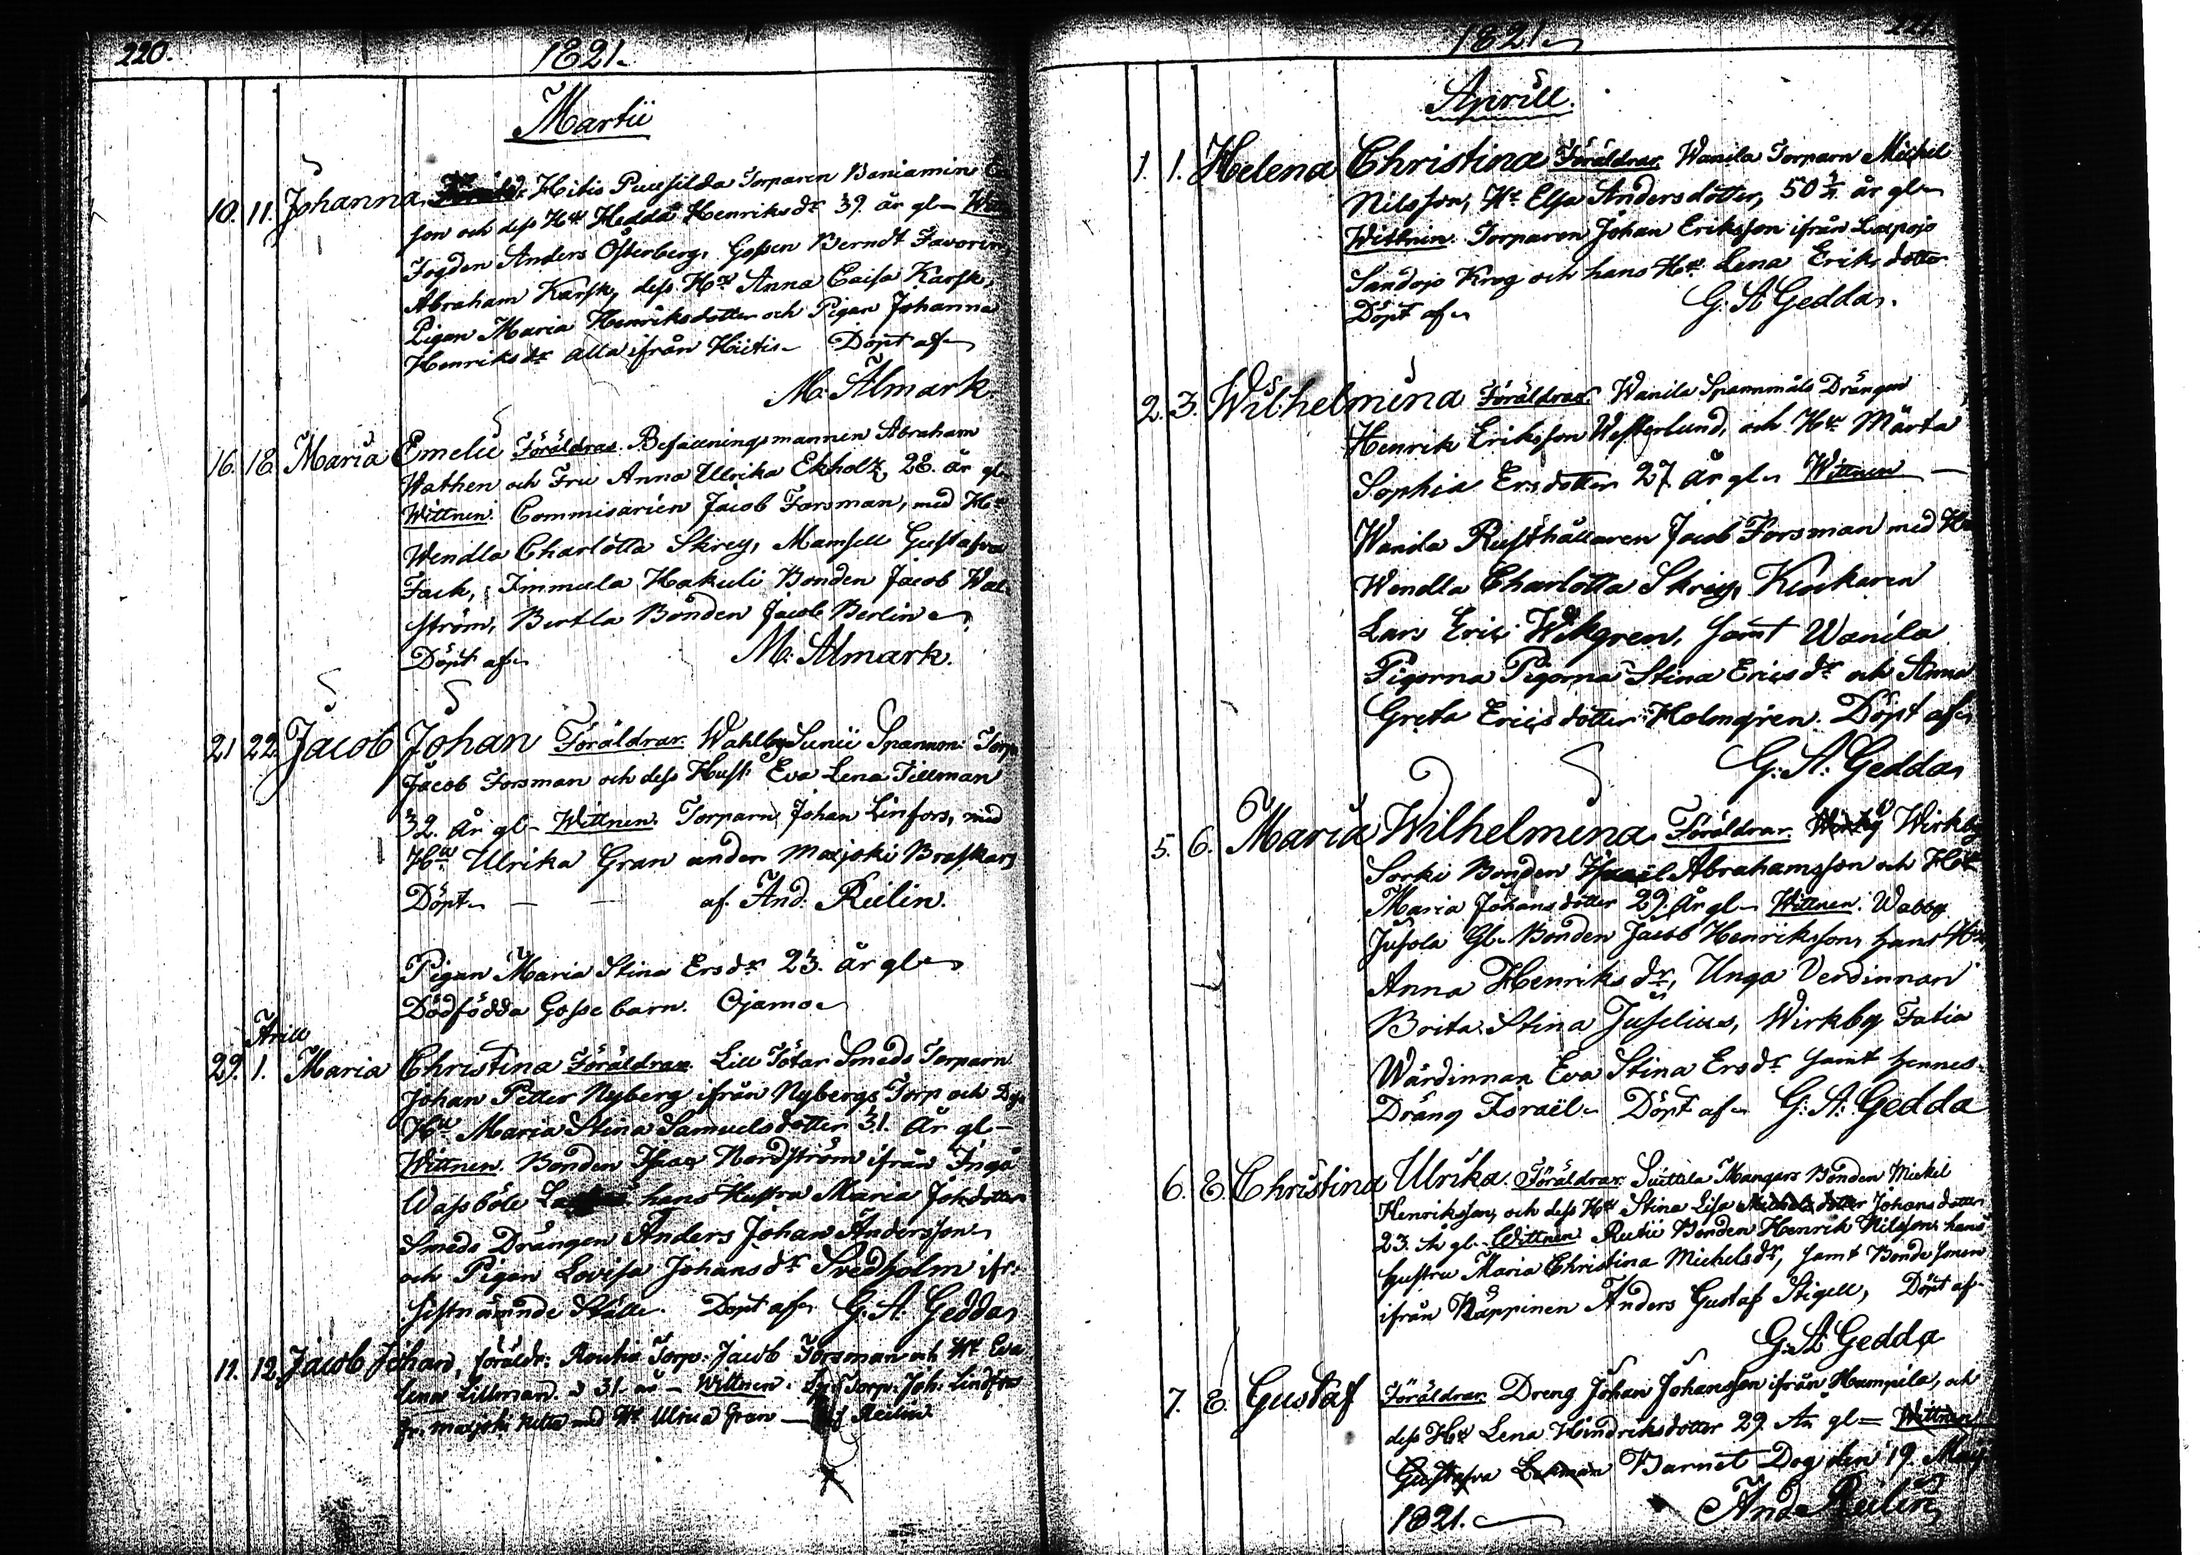 220.
1821.
Martii
10. 11. Johanna Hitis Torparen Baniamin
son och dess Hu Hedda Henriksdr 39. år gl.
Fogden Anders Österberg, Gossen Berndt Favorin
Abraham Karsk, dess Hu Anna Caisa Karsk,
Pigan Maria Henriksdotter och Pigan Johanna
Henriksdr alla ifrån Hiitis Döpt af
M. Almark.
16. 18. Maria Emelie Föräldrar. Befallningsmannen Abraham
Wathen och Fru Anna Ullrika Ekholz, 28. år gl.
Wittnen. Commisarien Jacob Forsman, med Hu
Wendla Charlotta Skrey, Mamsell Gustafva
Fack, Immula Hakuli Bonden Jacob Wal-
ström, Bertla Bonden Jacob Berlin
Döpt af M. Almark.
21 22. Jacob Johan Föräldrar. Wahlby Sunii Spannm: Torp
Jacob Forsman och dess Hust: Eva Lena Tillman
32. år gl. Wittnen. Torparn Johan Linfors, med
Hu Ulrika Gran under Marjoki Braskars
Döpt af And. Reilin.
Pigan Maria Stina Ersdr 23. år gl
Dödfödda Gossebarn. Ojamo
Aprill
29. 1. Maria Christina Föräldrar. Lill Tötar Smeds Torparn
Johan Petter Nyberg ifrån Nybergs Torp och
Hu Maria Stina Samuelsdotter 31. År gl
Wittnen. Bonden Isaac Nordström ifrån Ingå
Wassböle hans Hustru Maria Johdotter
Smeds Drängen Anders Johan Andersson
och Pigan Lovisa Johansdr Svedholm ifr:
sistnämnde Ställe. Döpt af G. A. Gedda
11. 12 Jacob Johan, föräldr: Routio Torp: Jacob Forsman och Hu Eva
Lena Lillman 31. år Wittnen. Torp. Joh: Lindfors
fr. Marjoki med Hu Ulrica Gran Reilin
1821
Aprill.
1. 1. Helena Christina Föräldrar. Wanila Torparn Mickel
Nilsson, Hu Elsa Andersdotter, 50 ½ år gl
Wittnen. Torparen Johan Eriksson ifrån Lojo
Sandojo Krog och hans Hu Lena Eriksdotter
Döpt af G. A Gedda.
2. 3. Wilhelmina Föräldrar. Wanila Spannmåls Drängen
Henrik Eriksson Westerlund, och Hu Märta
Sophia Ersdotter 27 år gl. Wittnen
Wanila Rusthållaren Jacob Forsman med Hu
Wendla Charlotta Skrey, Kuskaren
Lars Eric Wikgren, samt Wanila
Pigorna Pigorna Stina Ericsdr och Anna
Greta Ericsdotter Holmgren. Döpt af
G: A: Gedda
5. 6. Maria Wilhelmina Föräldrar. Wirkby
Sorki Bonden Israel Abrahamsson och Hu
Maria Johansdotter 29. År gl. Wittnen. Wabby
Jusola Gl. Bonden Jacob Henriksson, hans Hu
Anna Henriksdr, Unga Verdinnan
Brita Stina Juselius, Wirkby Fatia
Wärdinnan Eva Stina Ersdr samt hennes
Dräng Israël. Döpt af G: A: Gedda
6. 8. Christina Ulrika. Föräldrar. Suittila Mangars Bonden Mickel
Henriksson, och dess Hu Stina Lisa Johansdotter
23. År gl. Wittnen Rutii Bonden Henrik Nilsson, hans
hustru Maria Christina Michelsdr, samt Bonde sonen
ifrån Näppinen Anders Gustaf Stigell, Döpt af
G. A Gedda
7. 8. Gustaf Föräldrar. Dreng Johan Johansson ifrån Humpila, och
dess Hu Lena Hindriksdotter 29. År gl. Wittnen
Gustafva Barnet Dog den 19. Maij
1821. And. Reilin